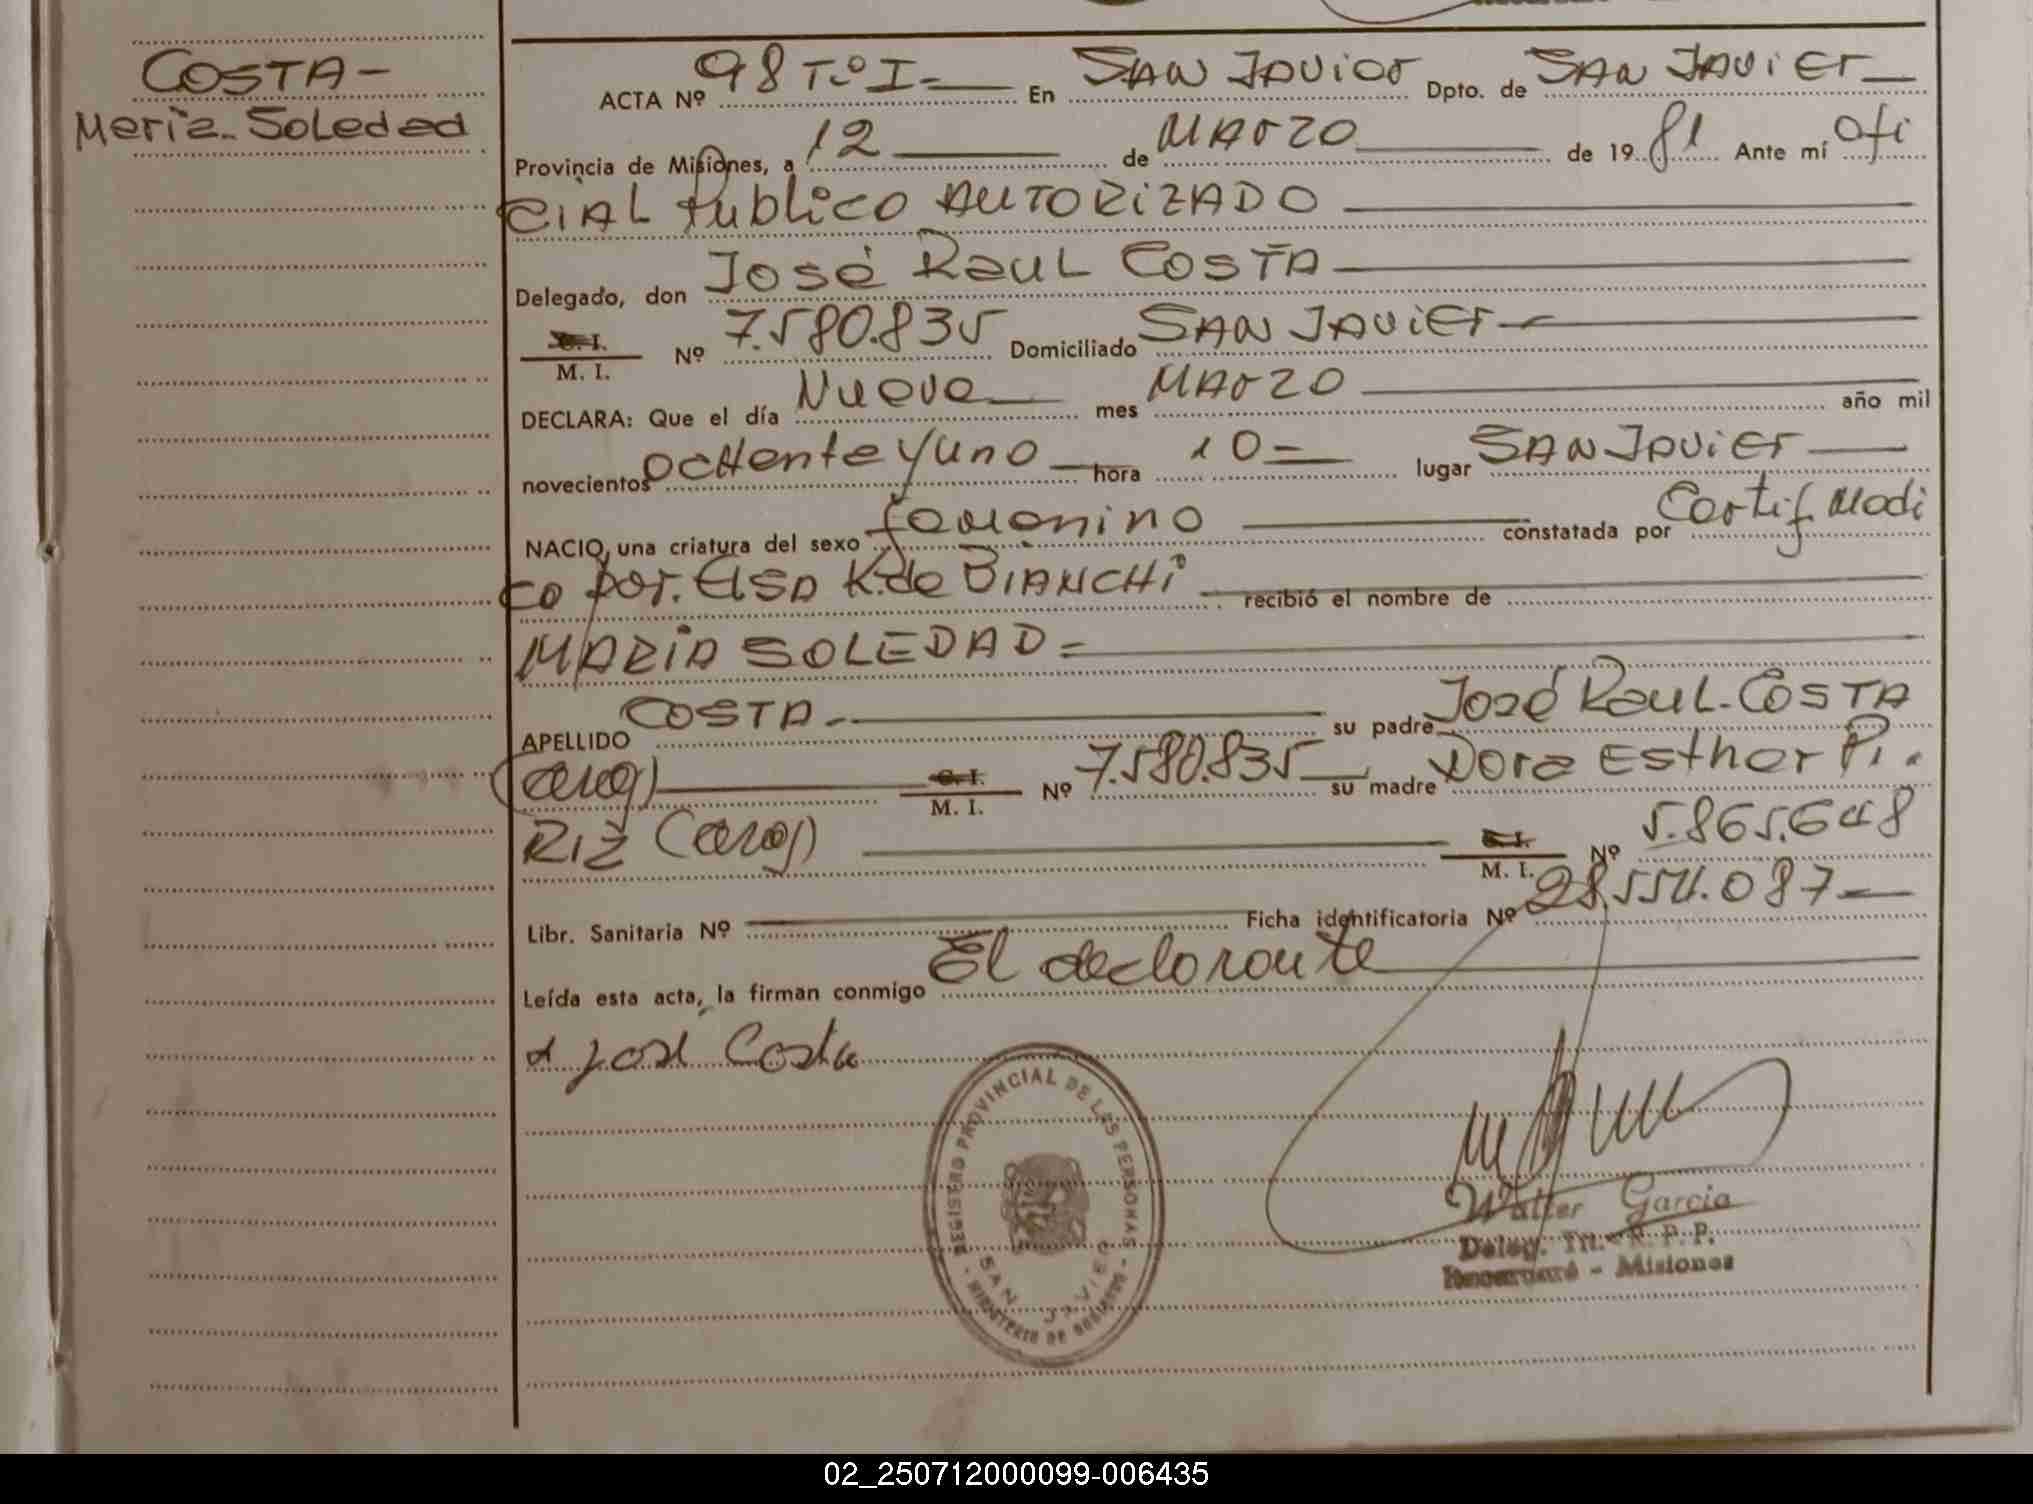 COSTA-
Maria-Soledad
ACTA Nº 98 Tº I- En SAN JAVIER Dpto. de SAN JAVIER
Provincia de Misiones, a 12 de MARZO de 1981 Ante mí Ofi
CIAL Publico AUTORIZADO
Delegado, don José Raul COSTA
C. I.
M. I. Nº 7.580.835 Domiciliado SAN JAVIER
DECLARA: Que el día Nueve mes MARZO año mil
novecientos ocHenta y uno hora 10= lugar SAN JAVIER
NACIO, una criatura del sexo femenino constatada por Certif Medi
co por. Elsa K. de BIANCHi recibió el nombre de
MARIA SOLEDAD=
APELLIDO COSTA- su padre José Raul-COSTA
(arg) C. I.
M. I. Nº 7.580.835 su madre Dora Esther Pi.
RIZ (arg) C. I.
M. I. Nº 5.865.648
Libr. Sanitaria Nº Ficha identificatoria Nº 28.554.087
Leída esta acta, la firman conmigo El declarante
José Costa
REGISTRO PROVINCIAL DE LAS PERSONAS - MINISTERIO DE GOBIERNO -
SAN JAVIER
Walter Garcia
Deleg. Tit. R. P. P.
- Misiones
02_250712000099-006435